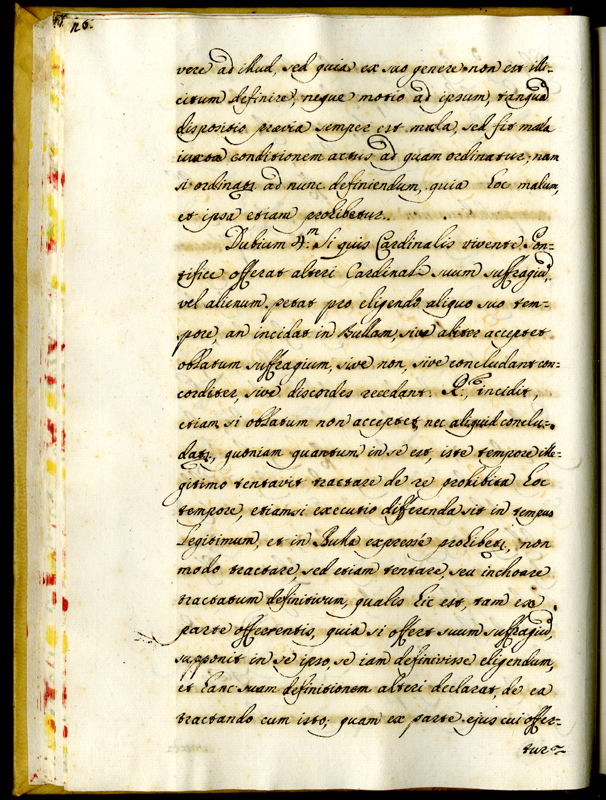 126.
vere ad illud, sed quia ex suo genere non est illi-
citum definire, neque motio ad ipsum, tanquā
dispositio prævia semper est mala, sed fit mala
iuxta conditionem actus ad quam ordinatur; nam
si ordinatʒ ad nunc definiendum, quia hoc malum,
et ipsa etiam prohibetur.
Dubium 4.m Si quis Cardinalis vivente Pon-
tifice offerat alteri Cardinali suum suffragiū,
vel alienum petat pro eligendo aliquo suo tem-
pore, an incidat in Bullam, sive alter acceptet
oblatum suffragium, sive non, sive concludant con-
corditer, sive discordes recedant. R. incidit,
etiam si oblatum non acceptet, nec aliquid conclu-
datʒ, quoniam quantum in se est, iste tempore ille-
gitimo tentavit tractare de re prohibita hoc
tempore, etiamsi executio differenda sit in tempus
legitimum, et in Bulla expresse prohibetʒ, non
modo tractare, sed etiam tentare, seu inchoare
tractatum definitivum, qualis hic est, tam ex
parte offerentis, quia si offert suum suffragiū,
supponit in se ipso se iam definivisse eligendum,
et hanc suam definitionem alteri declarat, de ea
tractando cum isto; quam ex parte ejus cui offer-
tur